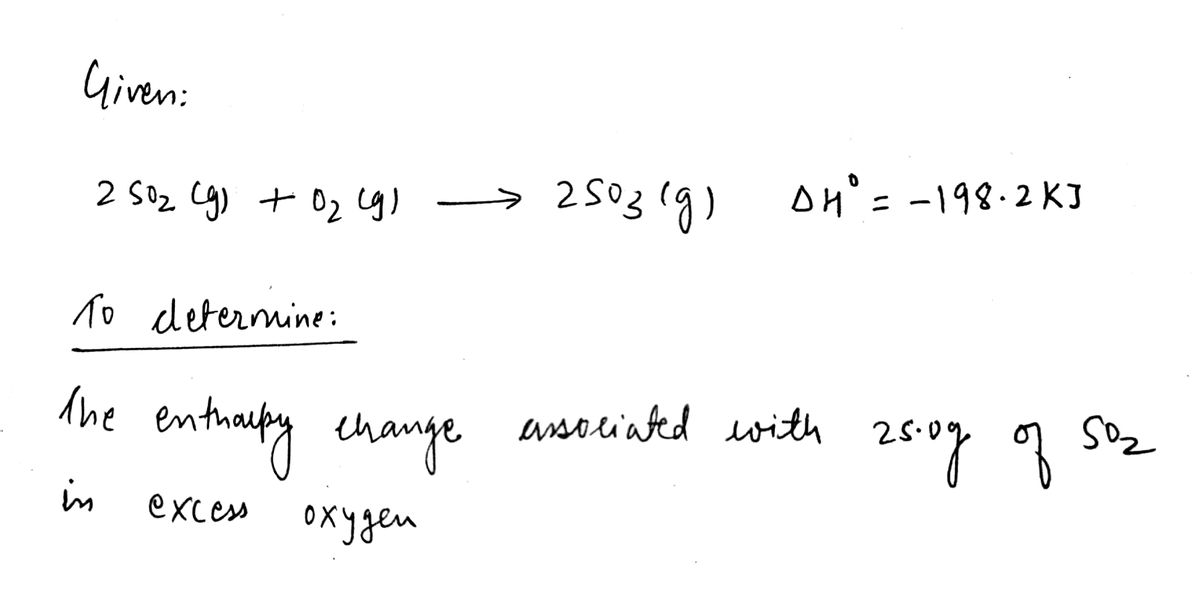 Given:
2 SO2 (g) + O2 (g) ⟶ 2SO3 (g) ΔH° = -198.2 KJ
To determine:
The enthalpy change associated with 25.0g of SO2
in excess oxygen